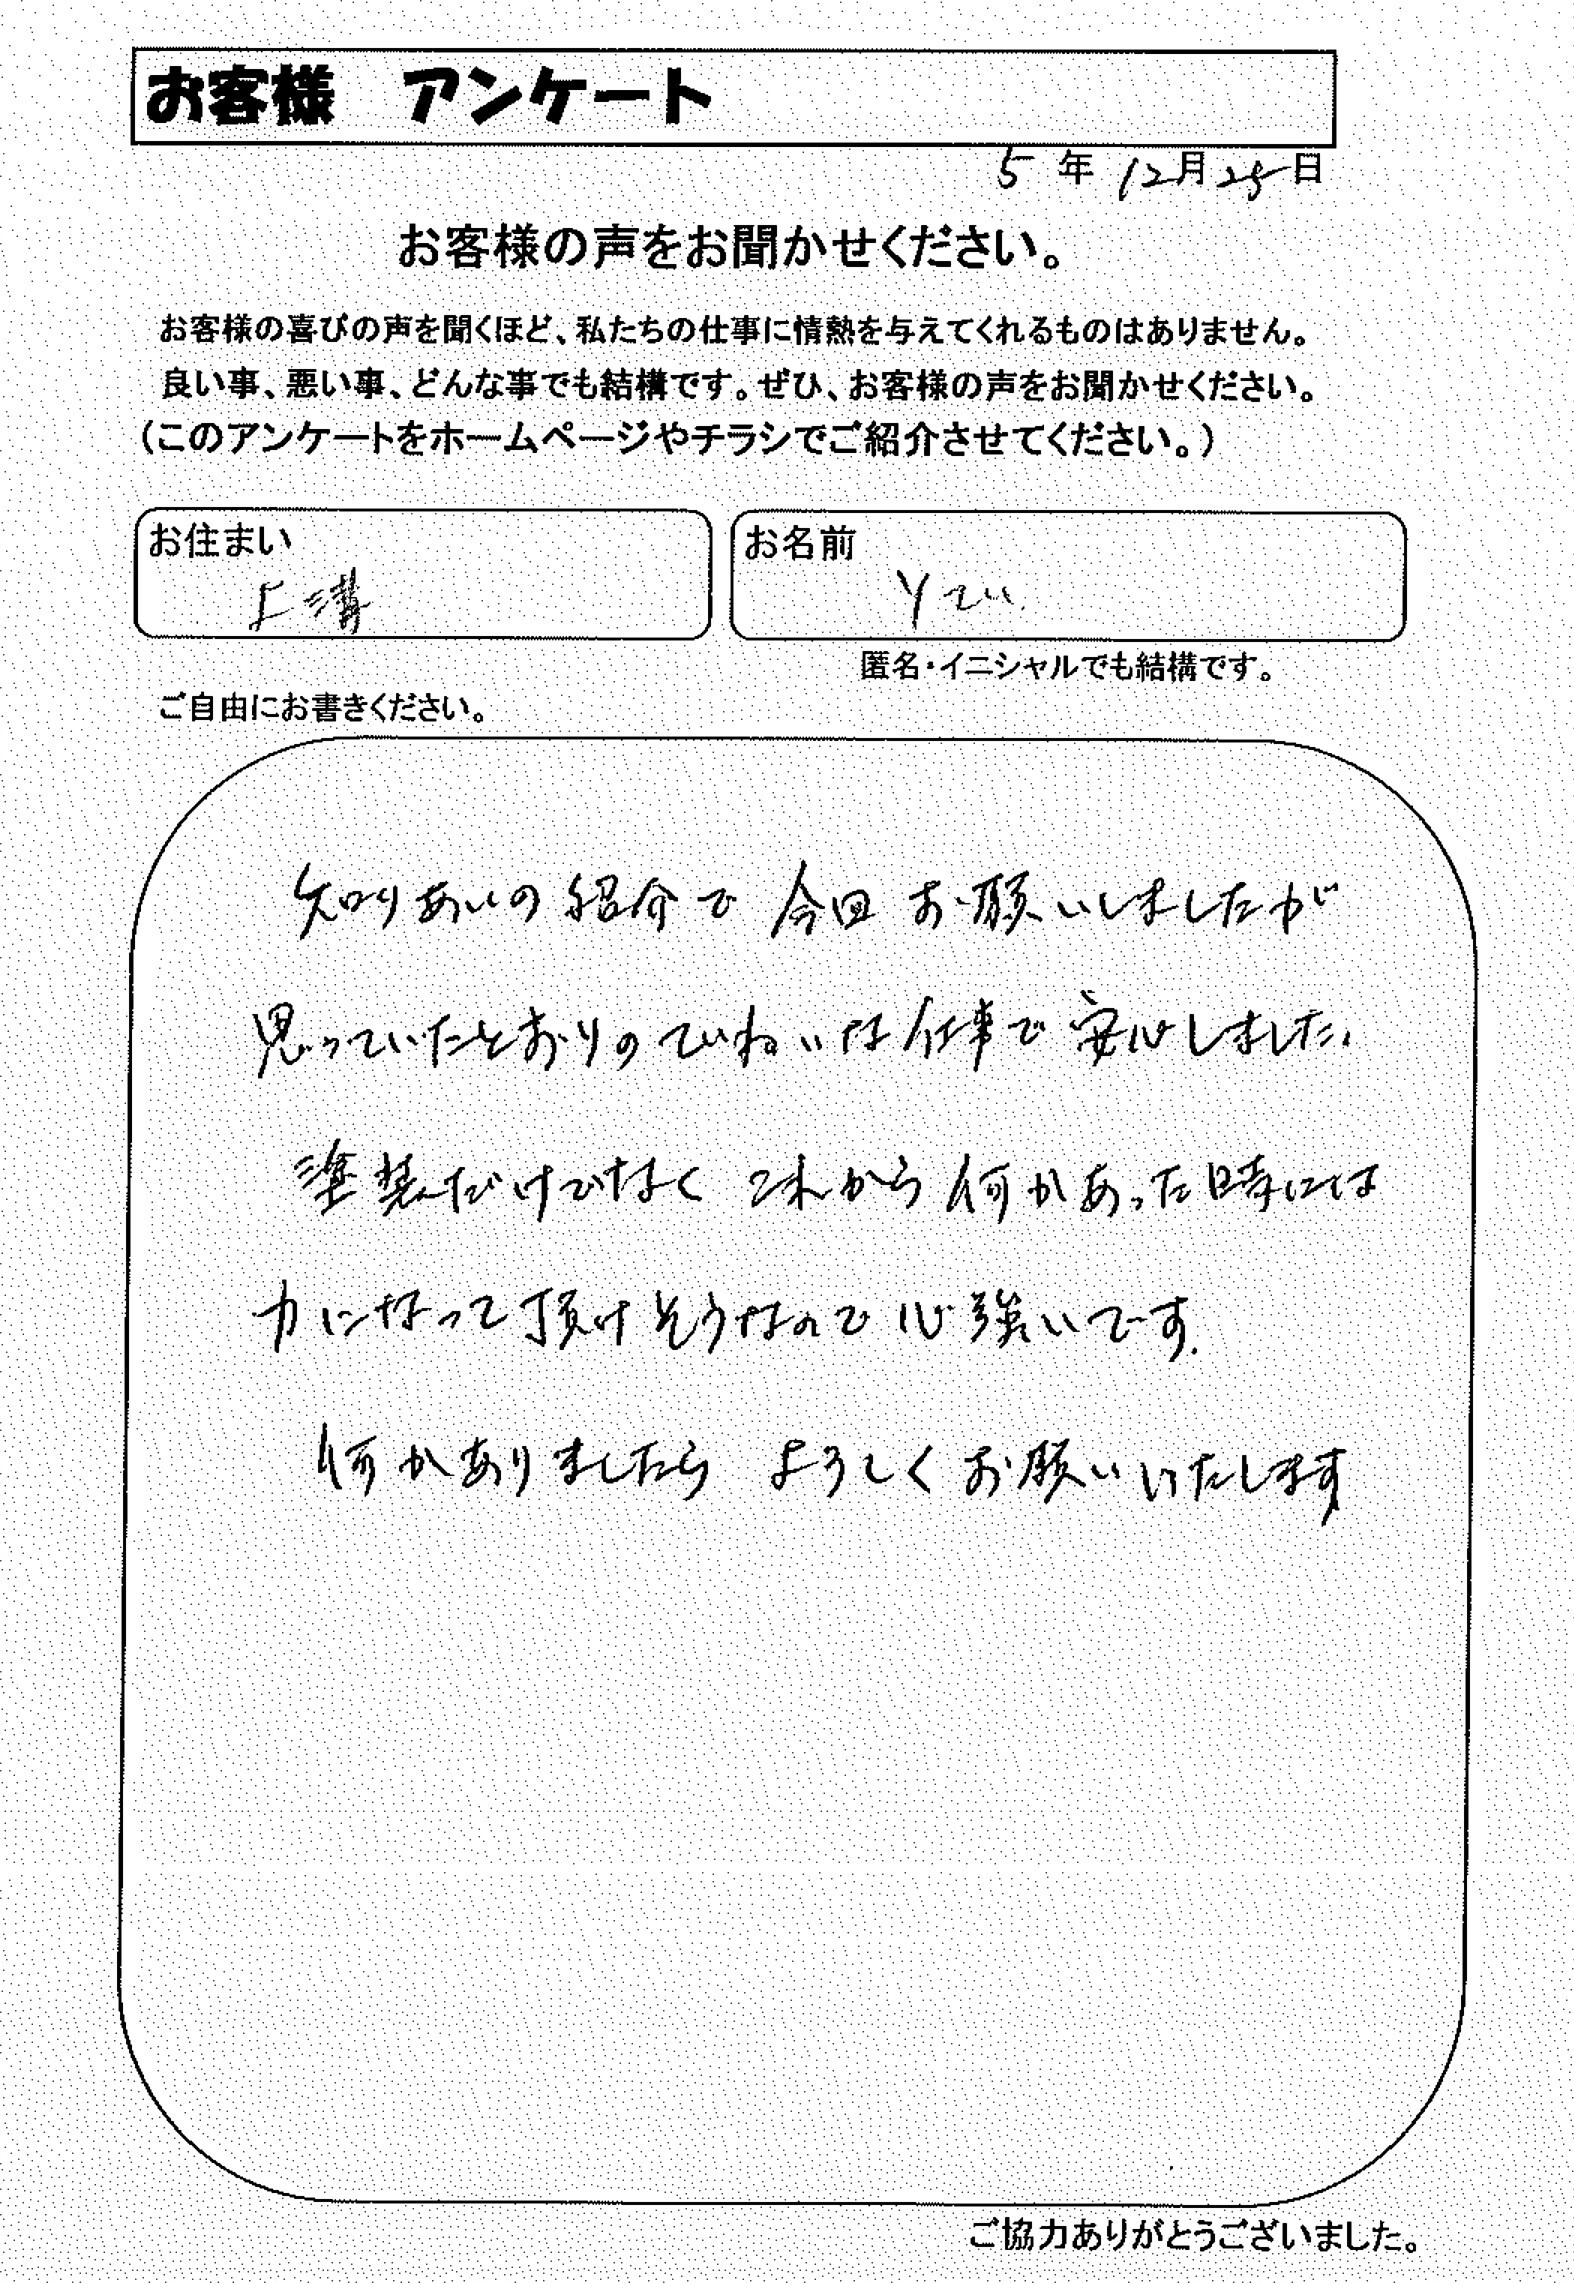 お客様 アンケート
5年12月25日
お客様の声をお聞かせください。
お客様の喜びの声を聞くほど、私たちの仕事に情熱を与えてくれるものはありません。
良い事、悪い事、どんな事でも結構です。ぜひ、お客様の声をお聞かせください。
（このアンケートをホームページやチラシでご紹介させてください。）
お住まい
上溝
お名前
Y
匿名・イニシャルでも結構です。
ご自由にお書きください。
知りあいの紹介で 今回 お願いしましたが
思っていたとおりのていねいな仕事で安心しました。
塗装だけでなく これから何かあった時には
力になって頂けそうなので心強いです.
何かありましたら よろしくお願いいたします
ご協力ありがとうございました。